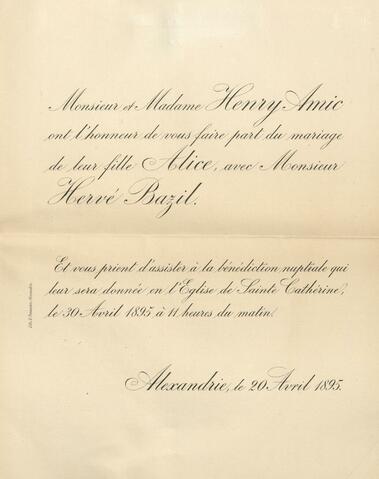 Monsieur et Madame Henry Amic
ont l'honneur de vous faire part du mariage
de leur fille Alice, avec Monsieur
Hervé Bazil.
Et vous prient d'assister à la bénédiction nuptiale qui
leur sera donnée en l'Eglise de Sainte Cathérine,
le 30 Avril 1895 à 11 heures du matin.
Alexandrie, le 20 Avril 1895.